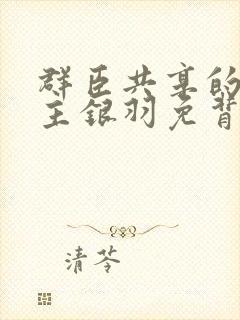 群臣共享的
主银羽免背
清苓